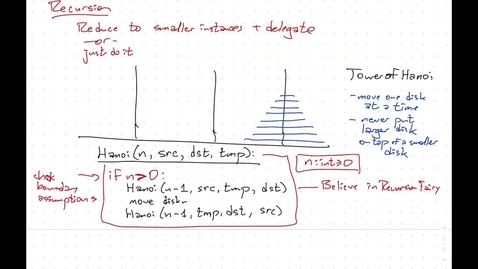 Recursion
Reduce to smaller instances + delegate
-or-
just do it
Tower of Hanoi
- move one disk
at a time
- never put
larger disk
on top of a smaller
disk
Hanoi (n, src, dst, tmp):
n: int≥0
if n>0:
Hanoi (n-1, src, tmp, dst)
move disk n
Hanoi (n-1, tmp, dst, src)
check
boundary
assumptions
Believe in Recursion Fairy